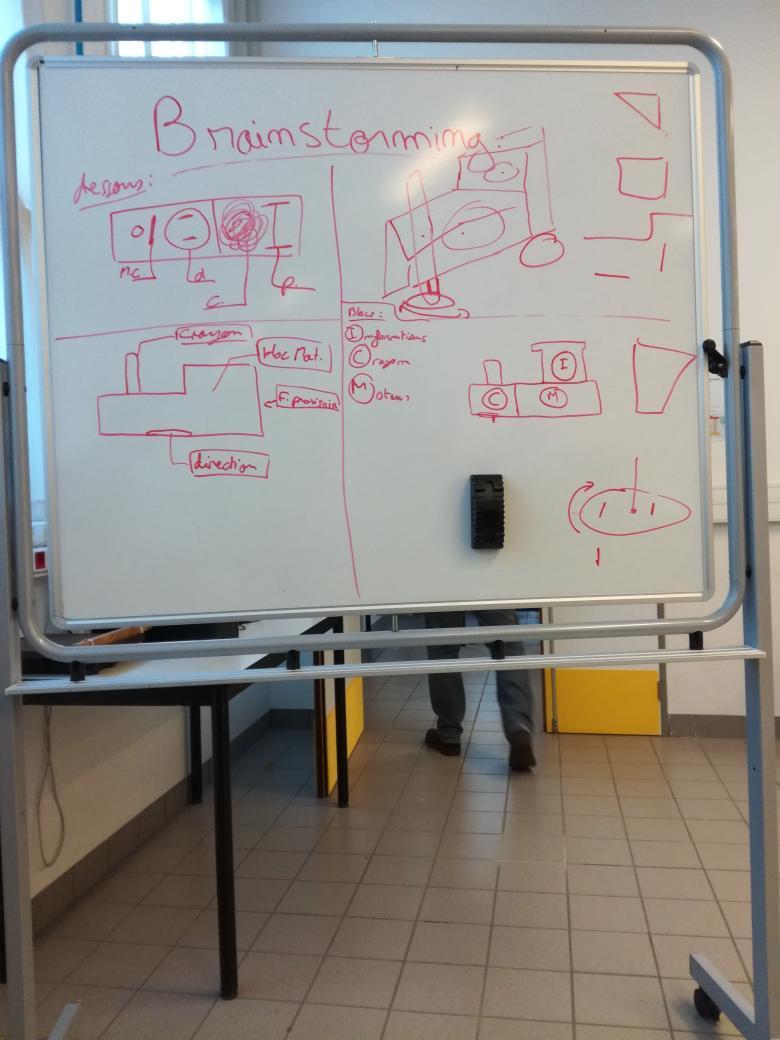 Brainstorming
dessous:
nc
d
c
p
Crayon
bloc Mot.
F. provisoire
direction
Blocs:
Informations
Crayon
Moteurs
I
C
M